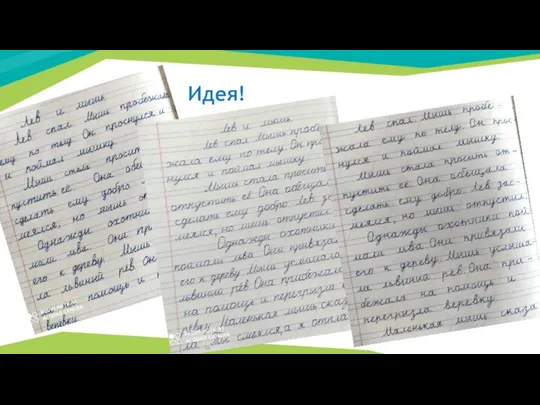 Идея!
Лев и мышь
Лев спал. Мышь пробежала
ему по телу. Он проснулся и
и поймал мышку.
Мышь стала просит
пустить её. Она обещ
сделать ему добро
меялся, но мышь от
Однажды охотник
мали льва. Они пр
его к дереву. Мышь
ла львиный рёв. Он
помощь и
верёвки
Лев и мышь
Лев спал. Мышь пробе
жала ему по телу. Он про
нулся и поймал мышку.
Мышь стала просить
отпустить её. Она обещал
сделать ему добро. Лев за
меялся, но мышь отпустил
Однажды охотники
поймали льва. Они привяза
его к дереву. Мышь услышала
львиный рёв. Она прибежала
на помощь и перегрызла
рёвку. Маленькая мышь сказ
смеялся, а я отпла
Лев спал. Мышь пробе-
жала ему по телу. Он прос
нулся и поймал мышку.
Мышь стала просить от-
пустить её. Она обещала
сделать ему добро. Лев зас-
меялся, но мышь отпустил
Однажды охотники пой
мали льва. Они привязали
его к дереву. Мышь услыша
ла львиный рёв. Она при-
бежала на помощь и
перегрызла верёвку.
Маленькая мышь сказа